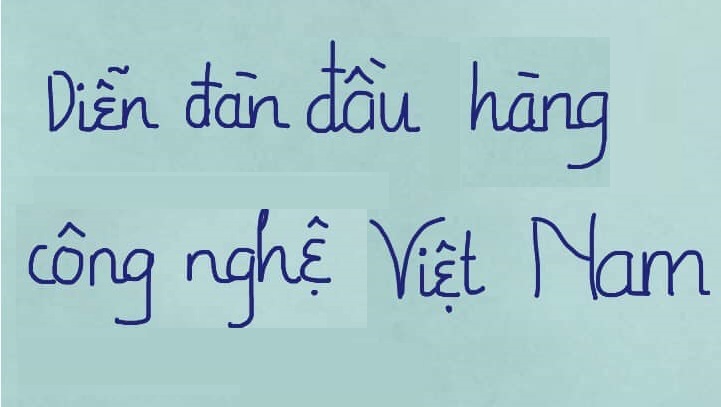 Diễn đàn đầu hàng
công nghệ Việt Nam